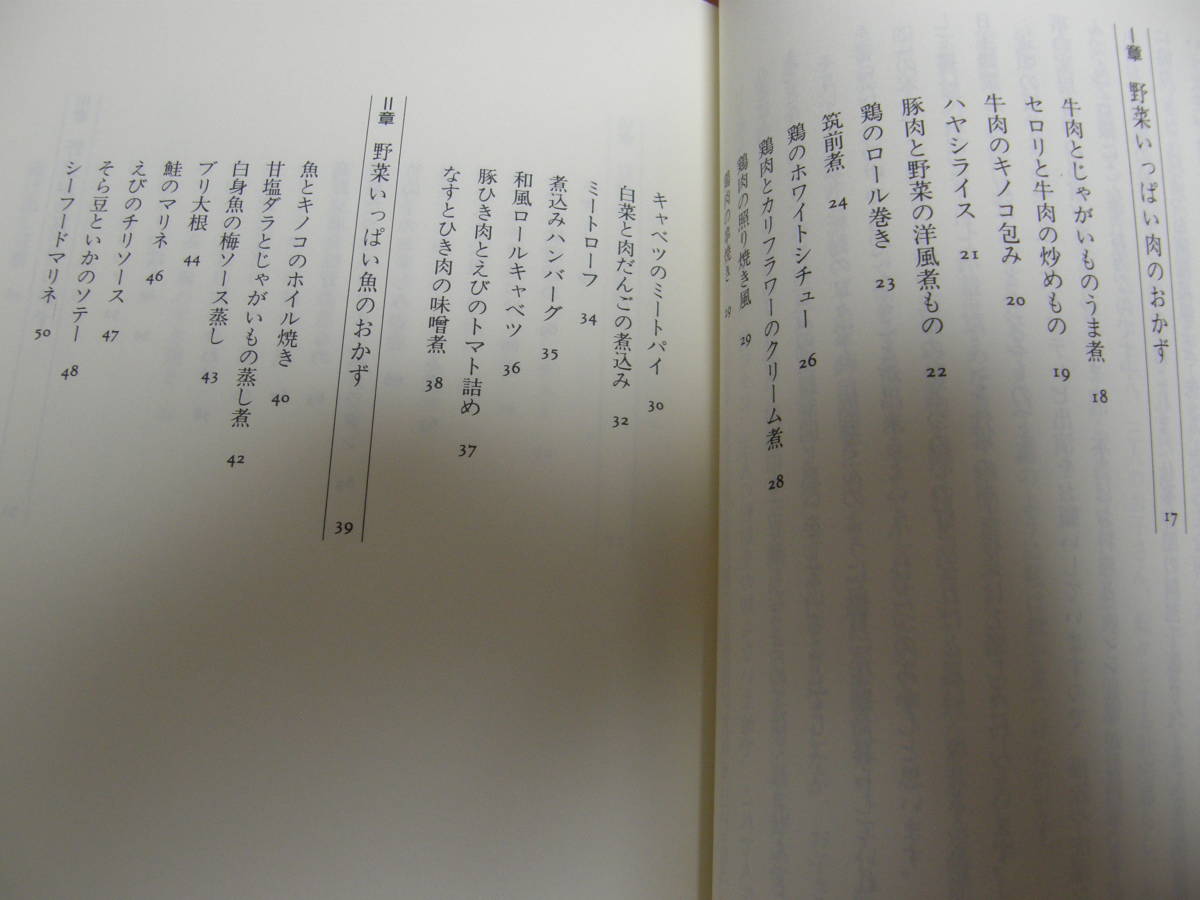 I章 野菜いっぱい肉のおかず 17
牛肉とじゃがいものうま煮 18
セロリと牛肉の炒めもの 19
牛肉のキノコ包み 20
ハヤシライス 21
豚肉と野菜の洋風煮もの 22
鶏のロール巻き 23
筑前煮 24
鶏のホワイトシチュー 26
鶏肉とカリフラワーのクリーム煮 28
鶏肉の照り焼き風 29
キャベツのミートパイ 30
白菜と肉だんごの煮込み 32
ミートローフ 34
煮込みハンバーグ 35
和風ロールキャベツ 36
豚ひき肉とえびのトマト詰め 37
なすとひき肉の味噌煮 38
II章 野菜いっぱい魚のおかず 39
魚とキノコのホイル焼き 40
甘塩ダラとじゃがいもの蒸し煮 42
白身魚の梅ソース蒸し 43
ブリ大根 44
鮭のマリネ 46
えびのチリソース 47
そら豆といかのソテー 48
シーフードマリネ 50